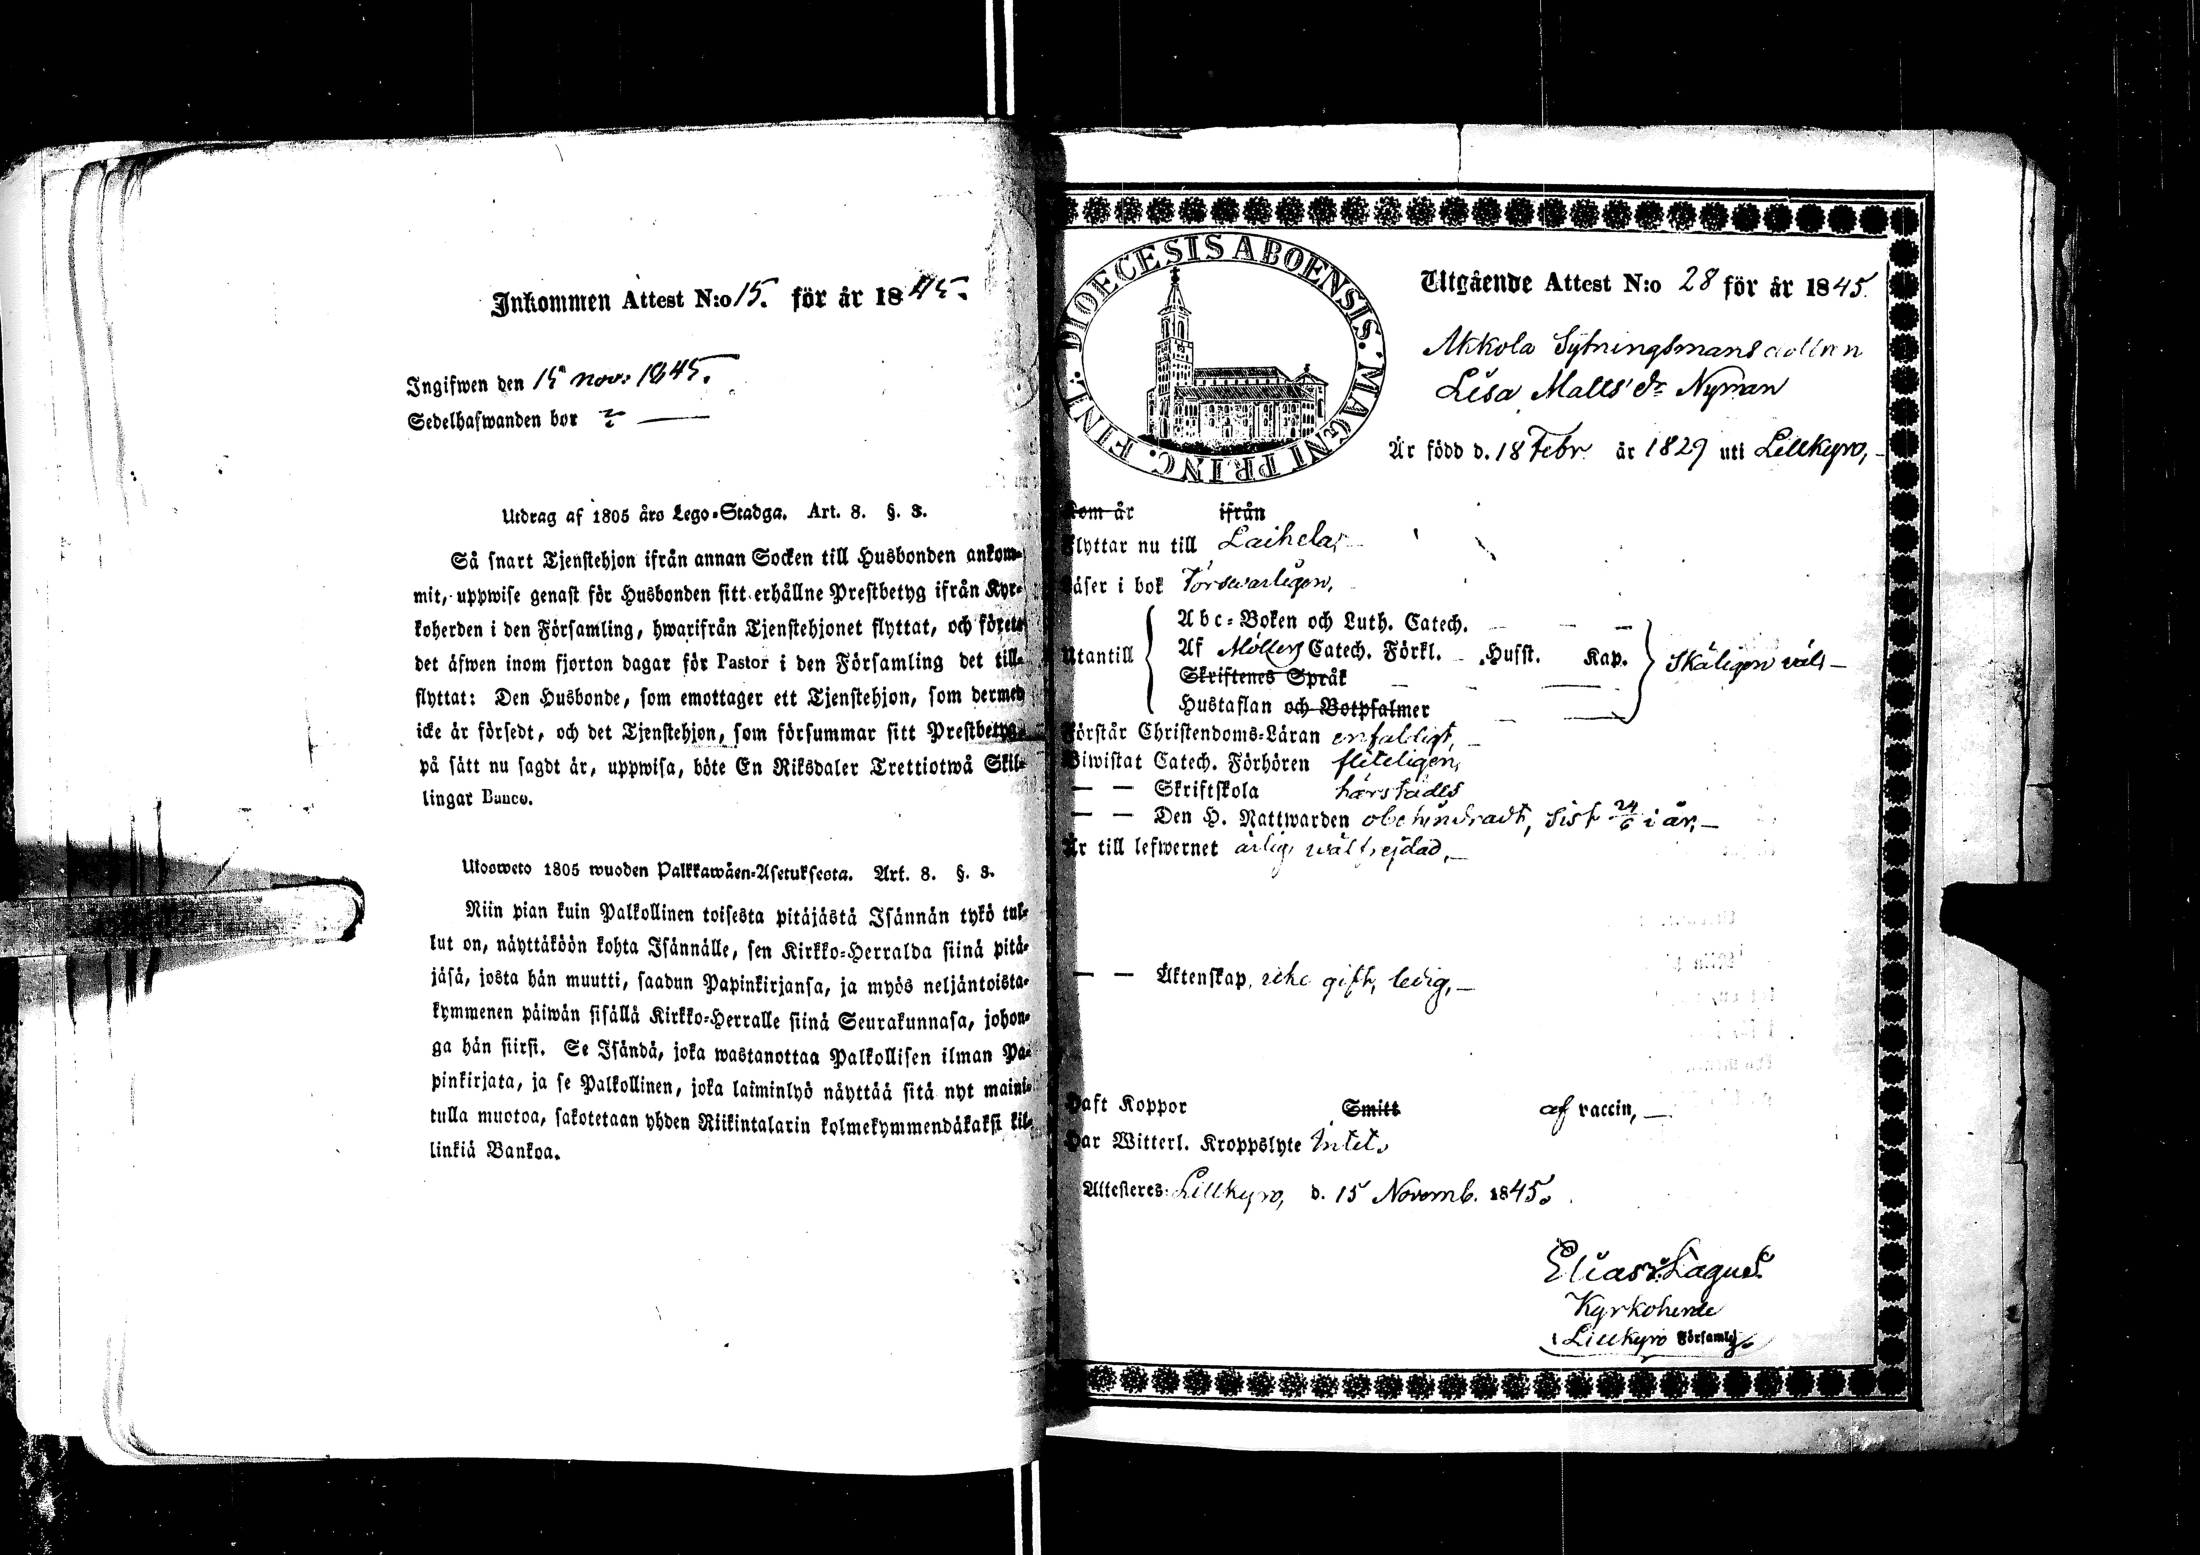 Inkommen Attest N:o 15. för år 1845.
Ingifwen den 15 nov: 1845.
Sedelhafwanden bor
Utdrag af 1805 års Lego-Stadga. Art. 8. §. 3.
Så snart Tjenstehjon ifrån annan Socken till Husbonden ankom-
mit, uppwise genast för Husbonden sitt erhållne Prestbetyg ifrån Kyr-
koherden i den Församling, hwarifrån Tjenstehjonet flyttat, och förete
det äfwen inom fjorton dagar för Pastor i den Församling det till-
flyttat: Den Husbonde, som emottager ett Tjenstehjon, som dermed
icke är försedt, och det Tjenstehjon, som försummar sitt Prestbetyg,
på sätt nu sagdt är, uppwisa, böte En Riksdaler Trettiotwå Skil-
lingar Banco.
Ulosweto 1805 wuoden Palkkawäen-Asetuksesta. Art. 8. §. 3.
Niin pian kuin Palkollinen toisesta pitäjästä Isännän tykö tul-
lut on, näyttäköön kohta Isännälle, sen Kirkko-Herralda siinä pitä-
jäsä, josta hän muutti, saadun Papinkirjansa, ja myös neljäntoista-
kymmenen päiwän sisällä Kirkko-Herralle siinä Seurakunnasa, johon-
ga hän siirsi. Se Isändä, joka wastanottaa Palkollisen ilman Pa-
pinkirjata, ja se Palkollinen, joka laiminlyö näyttää sitä nyt maini-
tulla muotoa, sakotetaan yhden Riikintalarin kolmekymmendäkaksi kil-
linkiä Bankoa.
DIOECESIS ABOENSIS. MAGNI PRINC. FINL.
Utgående Attest N:o 28 för år 1845.
Akkola Sytningsmans dottren
Lisa Matts dr Nyman
Är född d. 18 Febr. år 1829 uti Lillkyro,
Kom år ifrån
Flyttar nu till Laihela,
Läser i bok Försvarligen,
Abc-Boken och Luth. Catech.
Utantill Af Möllers Catech. Förkl. Husst. Kap. Skäligen väl,
Skriftenes Språk
Hustaflan och Botpsalmer
Förstår Christendoms-Läran enfaldigt,
Biwistat Catech. Förhören fliteligen,
— — Skriftskola härstädes
— — Den H. Nattwarden obehindradt, sist 24/6 i år,
Är till lefwernet ärlig, wäl frejdad,
— — Äktenskap, icke gift, ledig,
Haft Koppor Smitt af vaccin,
Har Witterl. Kroppslyte Intet.
Attesteres: Lillkyro, d. 15 Novemb. 1845.
Elias Lagus.
Kyrkoherde
i Lillkyro Församlg.